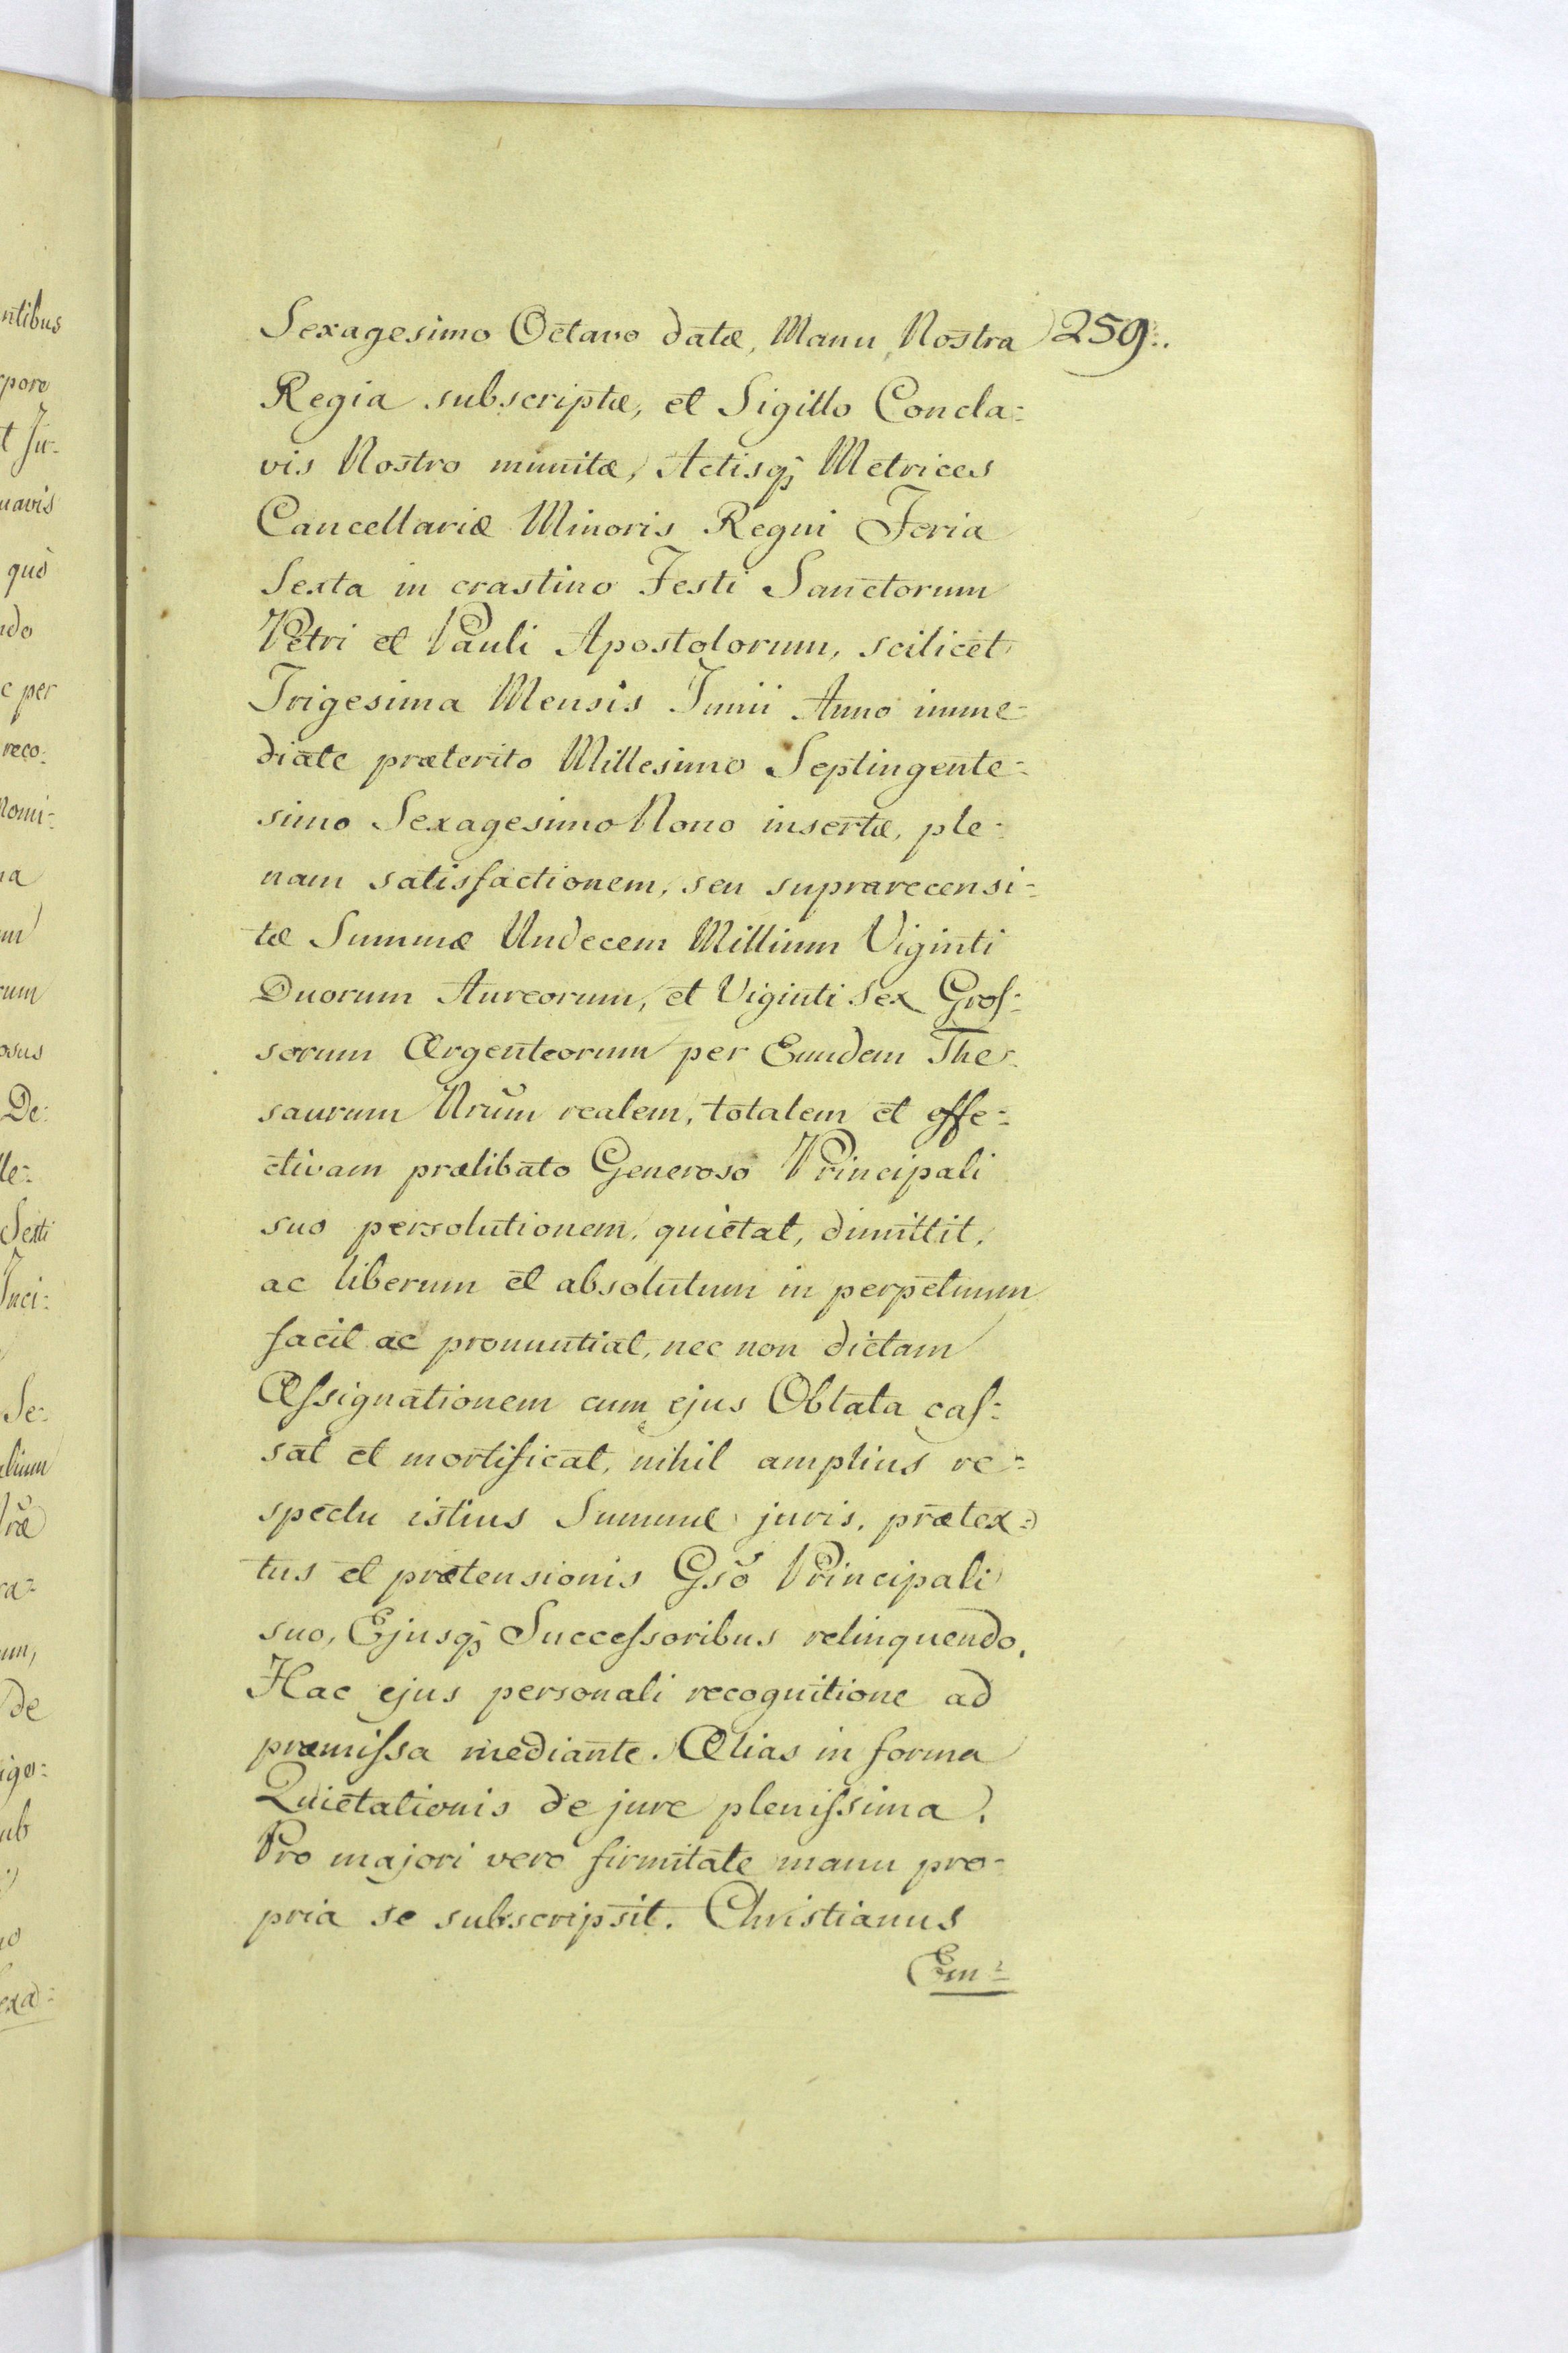 259.
Sexagesimo Octavo datæ, Manu Nostra
Regia subscriptæ, et Sigillo Concla=
vis Nostro munitæ, Actisq; Metrices
Cancellariæ Minoris Regni Feria
Sexta in crastino Festi Sanctorum
Petri et Pauli Apostolorum, scilicet
Trigesima Mensis Junii Anno imme=
diate præterito Millesimo Septingente=
simo Sexagesimo Nono insertæ, ple=
nam satisfactionem, seu suprarecensi=
tæ Summæ Undecem Millium Viginti
Duorum Aureorum, et Viginti Sex Gros=
sorum Argenteorum per Eundem The=
saurum Nrũm realem, totalem et effe=
ctivam prælibato Generoso Principali
suo persolutionem, quietat, dimittit,
ac liberum et absolutum in perpetuum
facit ac pronuntiat, nec non dictam
Assignationem cum ejus Oblata cas=
sat et mortificat, nihil amplius re=
spectu istius Summæ juris, prætex=
tus et prætensionis Gsõ Principali
suo, Ejusq; Successoribus relinquendo.
Hac ejus personali recognitione ad
præmissa mediante. Alias in forma
Quietationis de jure plenissima.
Pro majori vero firmitate manu pro=
pria se subscripsit. Christianus
Em=
ntibus
pore
t Ju=
uavis
quò
ndo
c per
reco=
Nomi=
na
um
rum
osus
De=
lle=
Sexti
Inci=
Se=
alium
Nræ
ra=
um,
de
igo=
ub
no
Sexa=